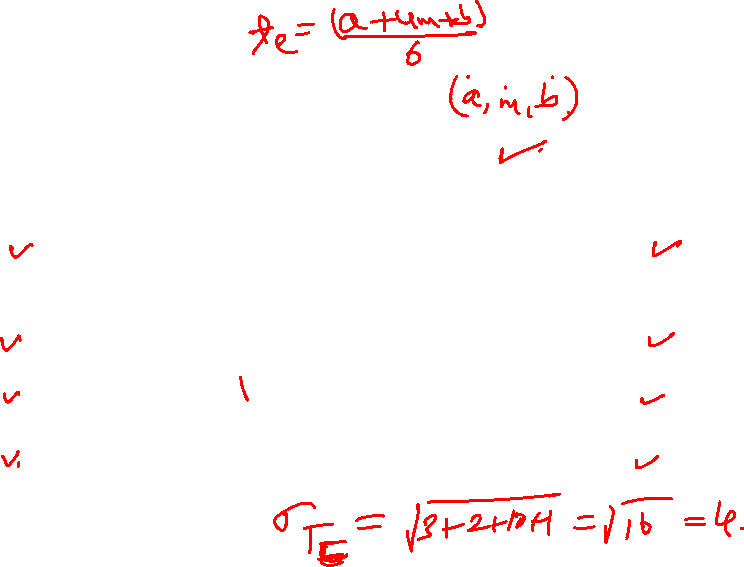 te = (a+4m+b)/6
(a, m, b)
✓
✓ ✓
✓ ✓
✓ \ ✓
✓ ✓
σ_TE = √3+2+10+1 = √16 = 4.